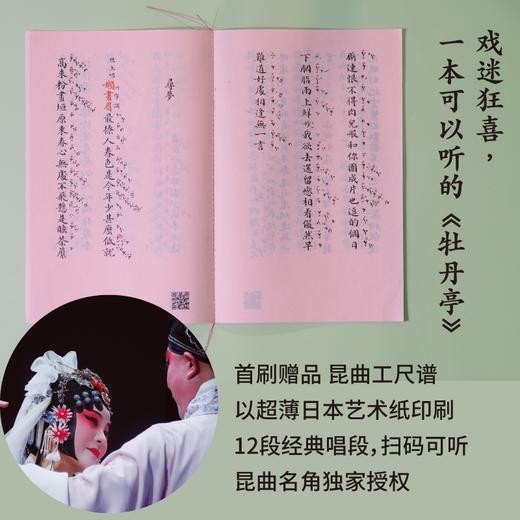 戏迷狂喜，
一本可以听的《牡丹亭》
廝連恨不得肉兒般和你團成片也逗的個日
下胭脂雨上鮮吹我欲去還留戀相看儼然早
難道好處相逢無一言
尋夢
旦上唱
嬾畫眉最撩人春色是今年少甚麼低就
高來粉畫垣原來春心無處不飛懸是睡荼蘼
首刷赠品 昆曲工尺谱
以超薄日本艺术纸印刷
12段经典唱段，扫码可听
昆曲名角独家授权